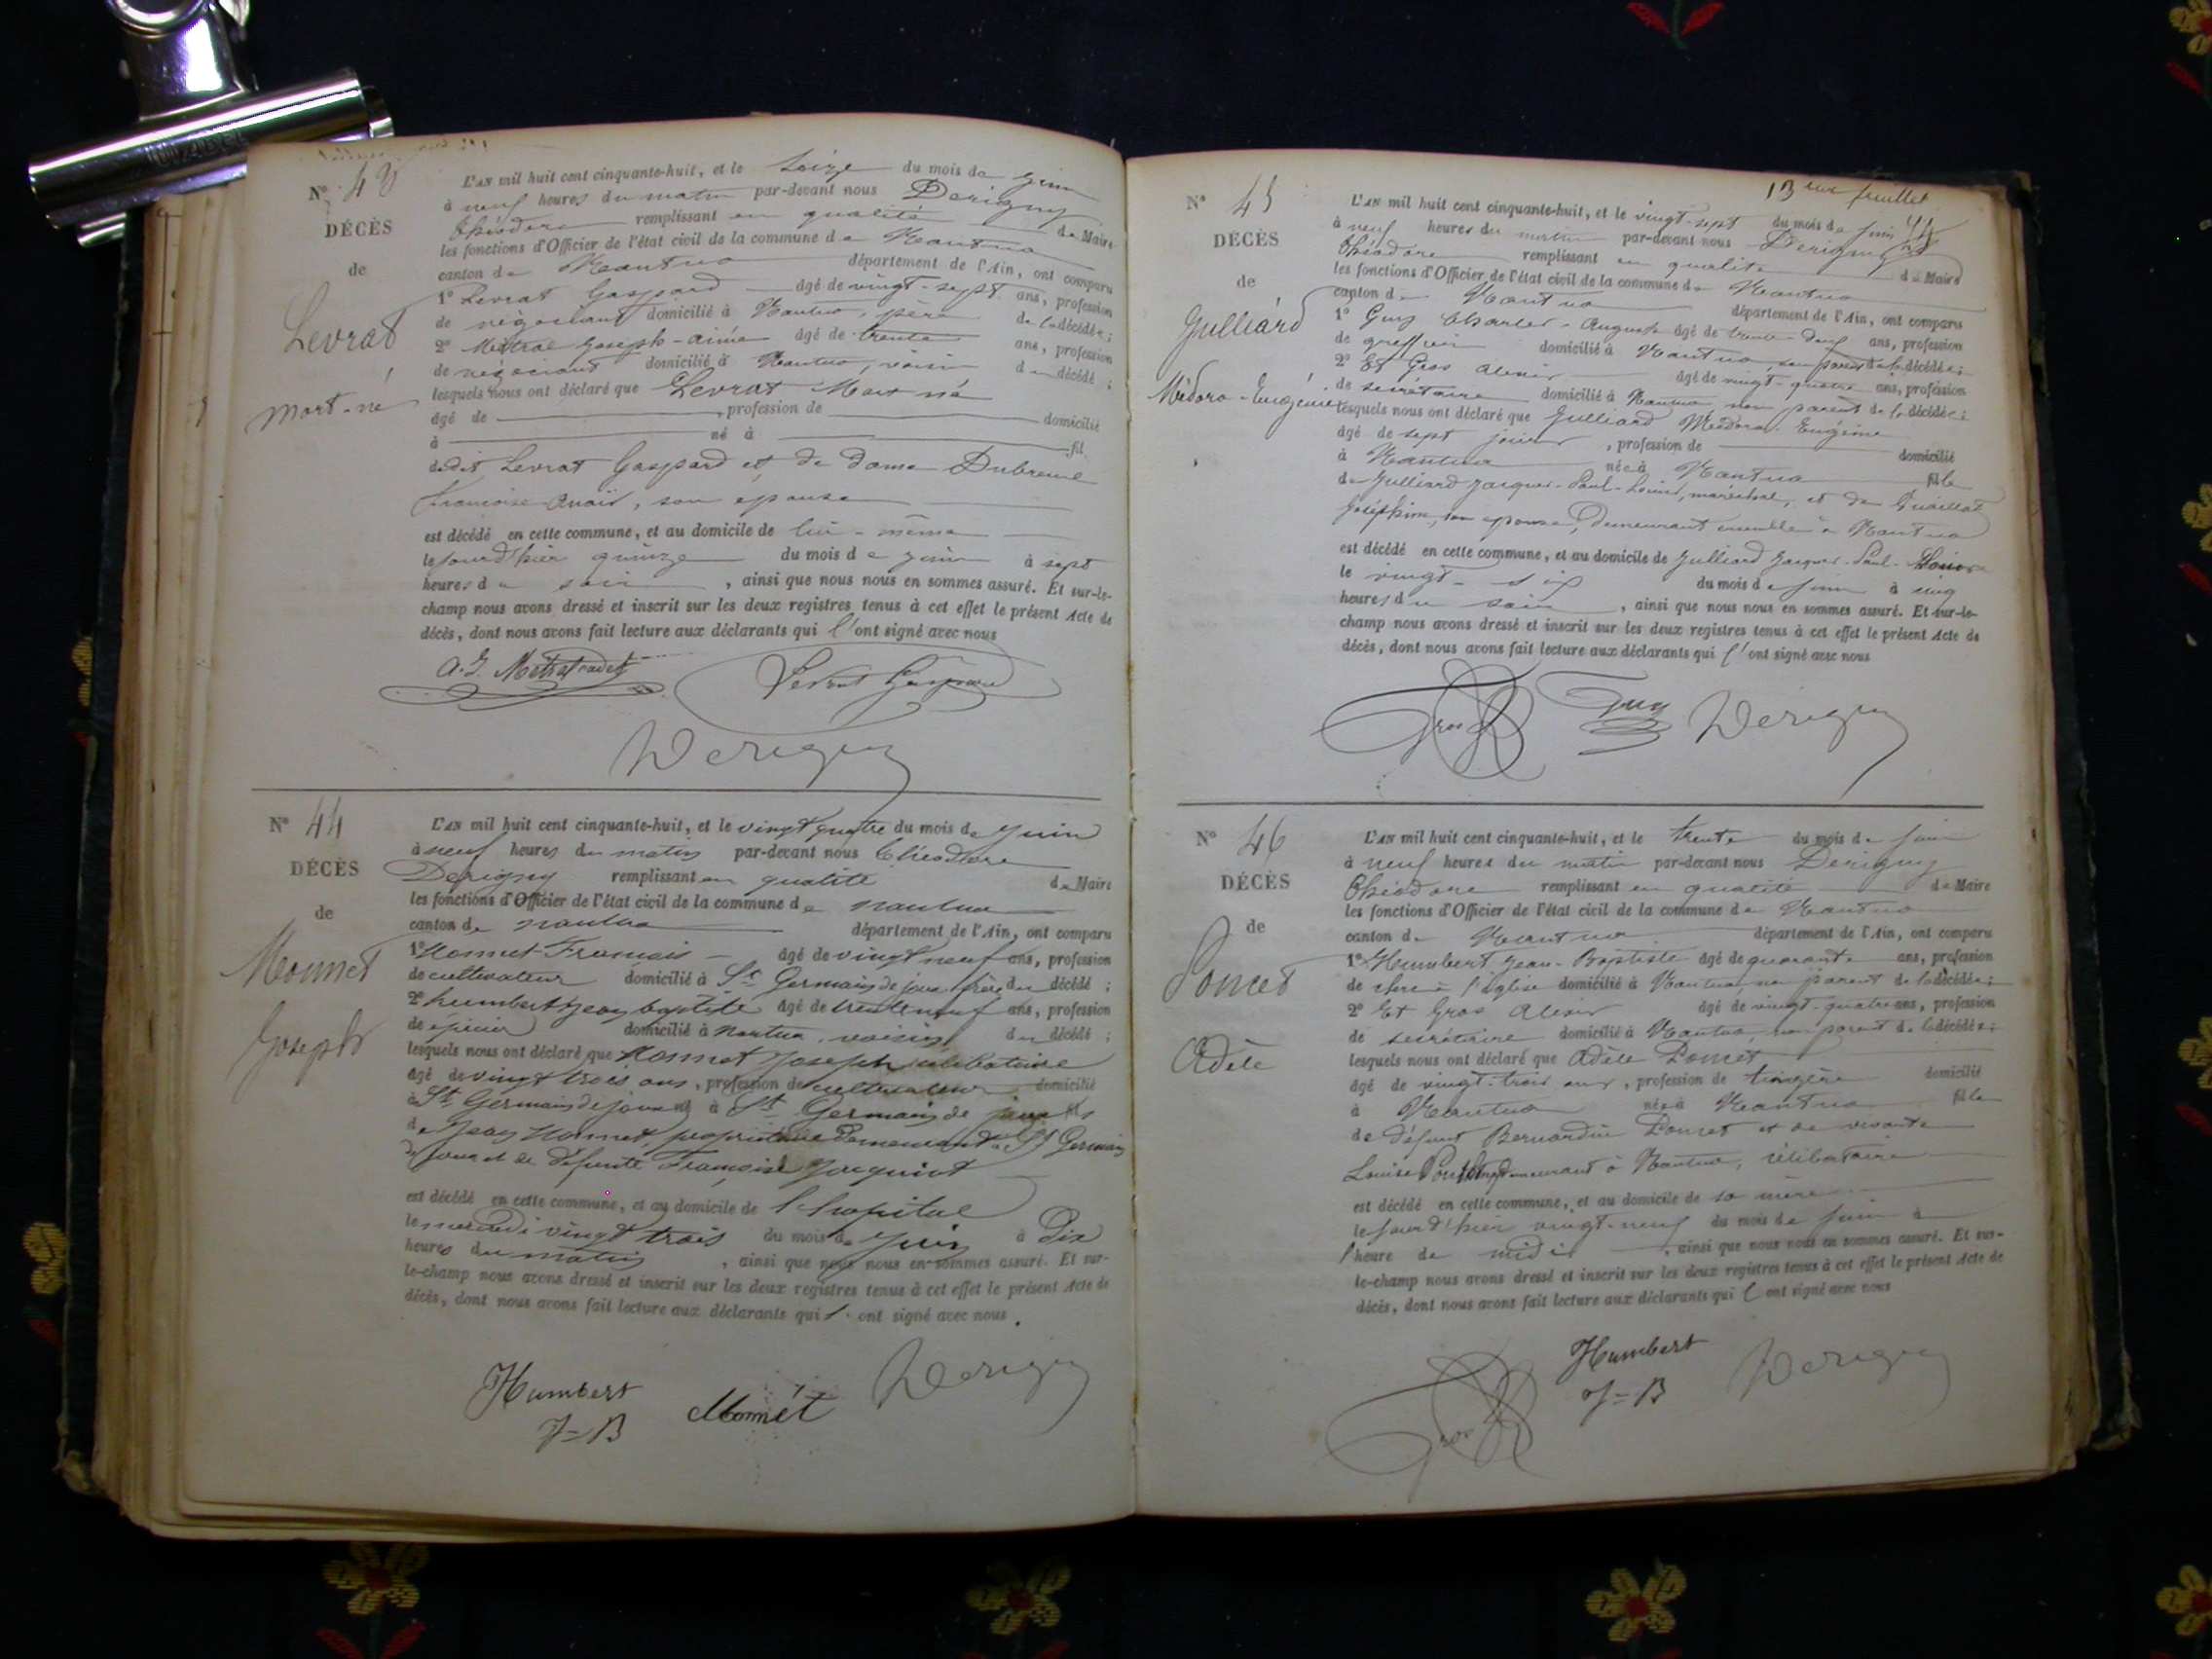 N° 43
DÉCÈS
de
Levrat
mort-né
L'AN mil huit cent cinquante-huit, et le seize du mois de juin
à neuf heures du matin par-devant nous Derigny
Théodore remplissant en qualité de Maire
les fonctions d'Officier de l'état civil de la commune de Nantua
canton de Nantua département de l'Ain, ont comparu
1° Levrat Gaspard âgé de vingt-sept ans, profession
de négociant domicilié à Nantua, père de la décédée;
2° Métral Joseph-aimé âgé de trente ans, profession
de négociant domicilié à Nantua, voisin du décédé;
lesquels nous ont déclaré que Levrat Mort né
âgé de , profession de domicilié
à né à fil
dudit Levrat Gaspard et de dame Dubreuil
Françoise Anaïs, son épouse
est décédé en cette commune, et au domicile de lui-même
le jour d'hier quinze du mois de juin à sept
heures du soir , ainsi que nous nous en sommes assuré. Et sur-le-
champ nous avons dressé et inscrit sur les deux registres tenus à cet effet le présent Acte de
décès, dont nous avons fait lecture aux déclarants qui l'ont signé avec nous
Levrat Gaspard
Derigny
N° 44
DÉCÈS
de
Monnet
Joseph
L'AN mil huit cent cinquante-huit, et le vingt quatre du mois de juin
à neuf heures du matin par-devant nous Théodore
Derigny remplissant en qualité de Maire
les fonctions d'Officier de l'état civil de la commune de nantua
canton de nantua département de l'Ain, ont comparu
1° Monnet François âgé de vingt neuf ans, profession
de cultivateur domicilié à St Germain de joux frère du décédé;
2° humbert jean baptiste âgé de trente neuf ans, profession
de épicier domicilié à nantua, voisin du décédé;
lesquels nous ont déclaré que Monnet Joseph célibataire
âgé de vingt trois ans, profession de cultivateur domicilié
à St Germain de joux né à St Germain de joux fils
de Jean Monnet, propriétaire demeurant à St Germain
de joux et de défunte Françoise Jacquiot
est décédé en cette commune, et au domicile de l'hopital
le mercredi vingt trois du mois de juin à Dix
heures du matin , ainsi que nous nous en sommes assuré. Et sur-
le-champ nous avons dressé et inscrit sur les deux registres tenus à cet effet le présent Acte de
décès, dont nous avons fait lecture aux déclarants qui l'ont signé avec nous.
Humbert
J=B
Monnet
Derigny
13eme feuillet
N° 45
DÉCÈS
de
Julliard
Médora-Eugénie
L'AN mil huit cent cinquante-huit, et le vingt-sept du mois de juin
à neuf heures du matin par-devant nous Derigny
Théodore remplissant en qualité de Maire
les fonctions d'Officier de l'état civil de la commune de Nantua
canton de Nantua département de l'Ain, ont comparu
1° Guy Charles-Auguste âgé de trente-deux ans, profession
de greffier domicilié à Nantua, non parent de la décédée;
2° Et Gros Alexis âgé de vingt-quatre ans, profession
de secrétaire domicilié à Nantua non parent de la décédée;
lesquels nous ont déclaré que Julliard Médora-Eugénie
âgé de sept jours , profession de domicilié
à Nantua née à Nantua fille
de Julliard Jacques-Paul-Louis, maréchal, et de
Joséphine, son épouse, demeurant ensemble à Nantua
est décédé en cette commune, et au domicile de Julliard Jacques-Paul-Louis
le vingt-six du mois de juin à cinq
heures du soir , ainsi que nous nous en sommes assuré. Et sur-le-
champ nous avons dressé et inscrit sur les deux registres tenus à cet effet le présent Acte de
décès, dont nous avons fait lecture aux déclarants qui l'ont signé avec nous
Gros Guy Derigny
N° 46
DÉCÈS
de
Poncet
Adèle
L'AN mil huit cent cinquante-huit, et le trente du mois de juin
à neuf heures du matin par-devant nous Derigny
Théodore remplissant en qualité de Maire
les fonctions d'Officier de l'état civil de la commune de Nantua
canton de Nantua département de l'Ain, ont comparu
1° Humbert Jean-Baptiste âgé de quarante ans, profession
de clerc à l'église domicilié à Nantua, non parent de la décédée;
2° Et Gros Alexis âgé de vingt-quatre ans, profession
de secrétaire domicilié à Nantua, non parent de la décédée;
lesquels nous ont déclaré que Adèle Poncet
âgé de vingt-trois ans, profession de lingère domicilié
à Nantua née à Nantua fille
de défunt Bernardin Poncet et de vivante
Louise demeurant à Nantua, célibataire
est décédé en cette commune, et au domicile de sa mère
le jour d'hier vingt-neuf du mois de juin à
l'heure de midi , ainsi que nous nous en sommes assuré. Et sur-
le-champ nous avons dressé et inscrit sur les deux registres tenus à cet effet le présent Acte de
décès, dont nous avons fait lecture aux déclarants qui l'ont signé avec nous
Humbert
J=B
Gros
Derigny